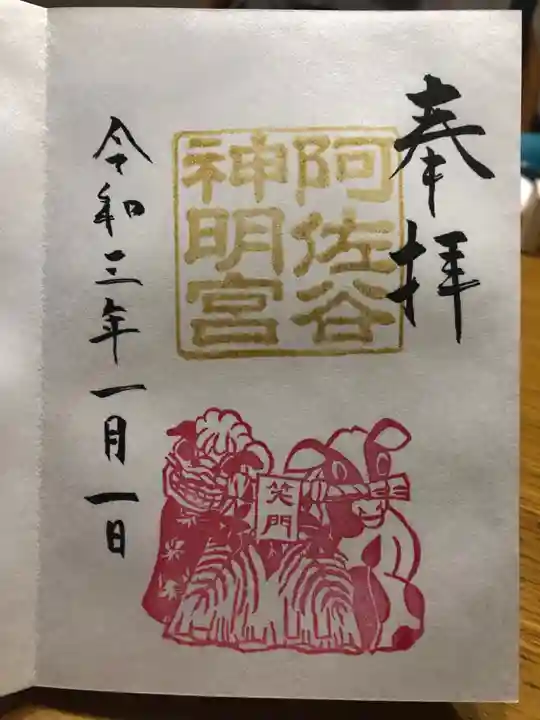 奉拝
阿佐谷
神明宮
笑門
令和三年一月一日